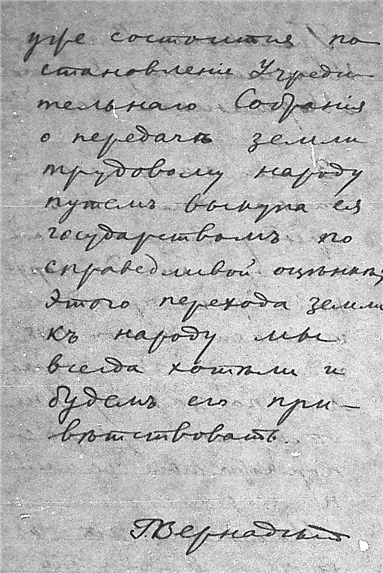 уже состоится по
становленіе Учреди
тельнаго Собранія
о передачѣ земли
трудовому народу
путемъ выкупа ея
государствомъ по
справедливой оцѣнкѣ;
этого перехода земли
къ народу мы
всегда хотѣли и
будемъ его при-
вѣтствовать.
Г. Вернадскій